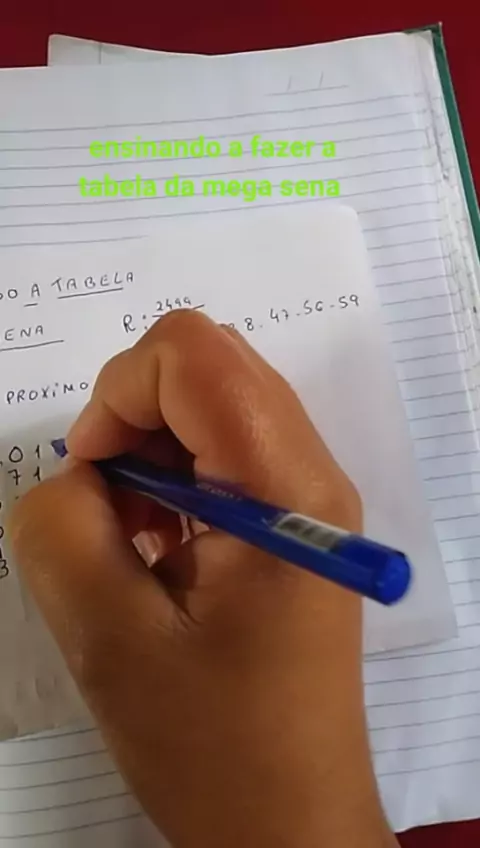 ensinando a fazer a
tabela da mega sena
DO A TABELA
ENA
R: 2499
8 - 47 - 56 - 59
PROXIMO
0 1
7 1
3